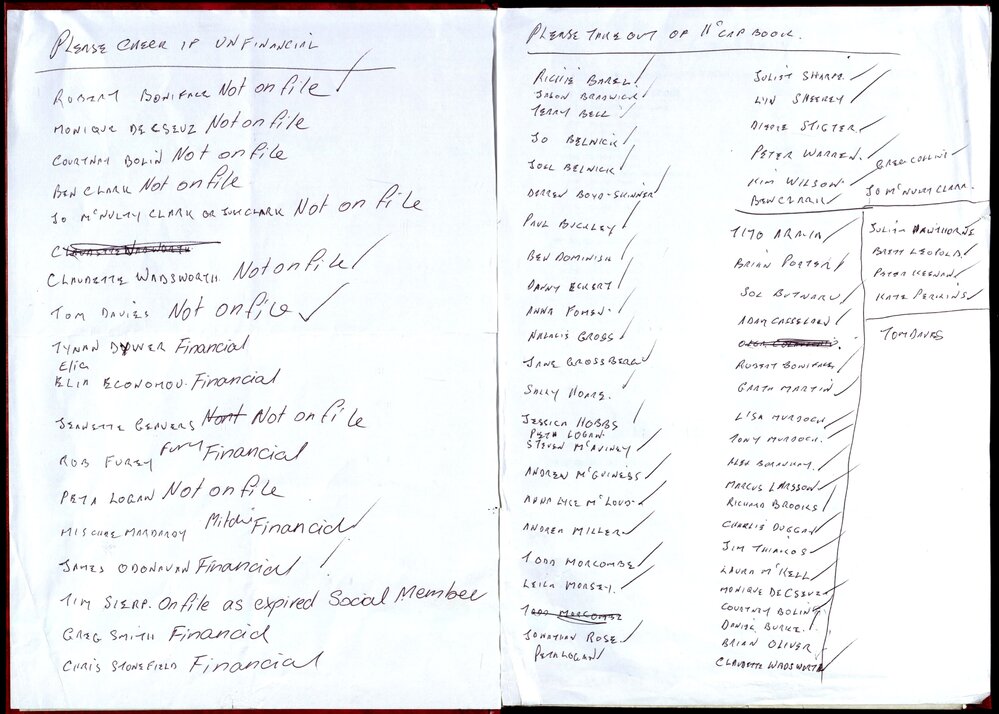 PLEASE CHECK IF UNFINANCIAL
ROBERT BONIFACE Not on file
MONIQUE DECSEUZ Not on file
COURTNAY BOLIN Not on file
BEN CLARK Not on file
JO McNULTY CLARK OR CLARK Not on file
CLAUDETTE WADSWORTH
CLAUDETTE WADSWORTH Not on file
TOM DAVIES Not on file
TYNAN DWYER Financial
Elia
ELIA ECONOMOU Financial
JEANETTE Not on file
ROB FUREY Furey Financial
PETA LOGAN Not on file
MARDAROY Financial
JAMES ODONAVAN Financial
TIM SIERP. On file as expired Social Member
GREG SMITH Financial
CHRIS STONEFIELD Financial
PLEASE TAKE OUT OF H'CAP BOOK.
RICHIE BAREL
JASON BRADWICK
TERRY BELL
JO BELNICK
JOEL BELNICK
DARREN BOYD-SKINNER
PAUL BUCKLEY
BEN DOMINISH
DANNY ECKERT
ANNA FOMEN
NATALIE GROSS
JANE GROSSBERG
SALLY HOARE.
JESSICA HOBBS
PETA LOGAN
STEVEN McAVINEY
ANDREW McGUINESS
ANNA LYCE McLOUD
ANDREA MILLER
TODD MORCOMBE
LEILA MORSEY
TODD MORCOMBE
JONATHAN ROSE.
PETA LOGAN
JULIET SHARM.
LYN SHEEREY
DIDDIE STIGTER
PETER WARREN.
KIM WILSON
BEN CLARK
TITO ARALIA
BRIAN PORTER
SOL BUTNARU
ADAM CASSELDEN
ROBERT BONIFACE
GARTH MARTIN
LISA MURDOCH
TONY MURDOCH.
ALEX
MARCUS LARSSON
RICHARD BROOKS
CHARLIE DUGGAN
JIM THIAKOS
LAURA McKELL
MONIQUE DECSEUZ
COURTNEY BOLIN
DANIEL BURKE.
BRIAN OLIVER
CLAUDETTE WADSWORTH
GREG COLLINS
JO McNULTY CLARK.
JULIAN HAWTHORNE
BRETT LEOPOLD.
PETER KEENAN
KATE PERKINS
TOM DAVIES